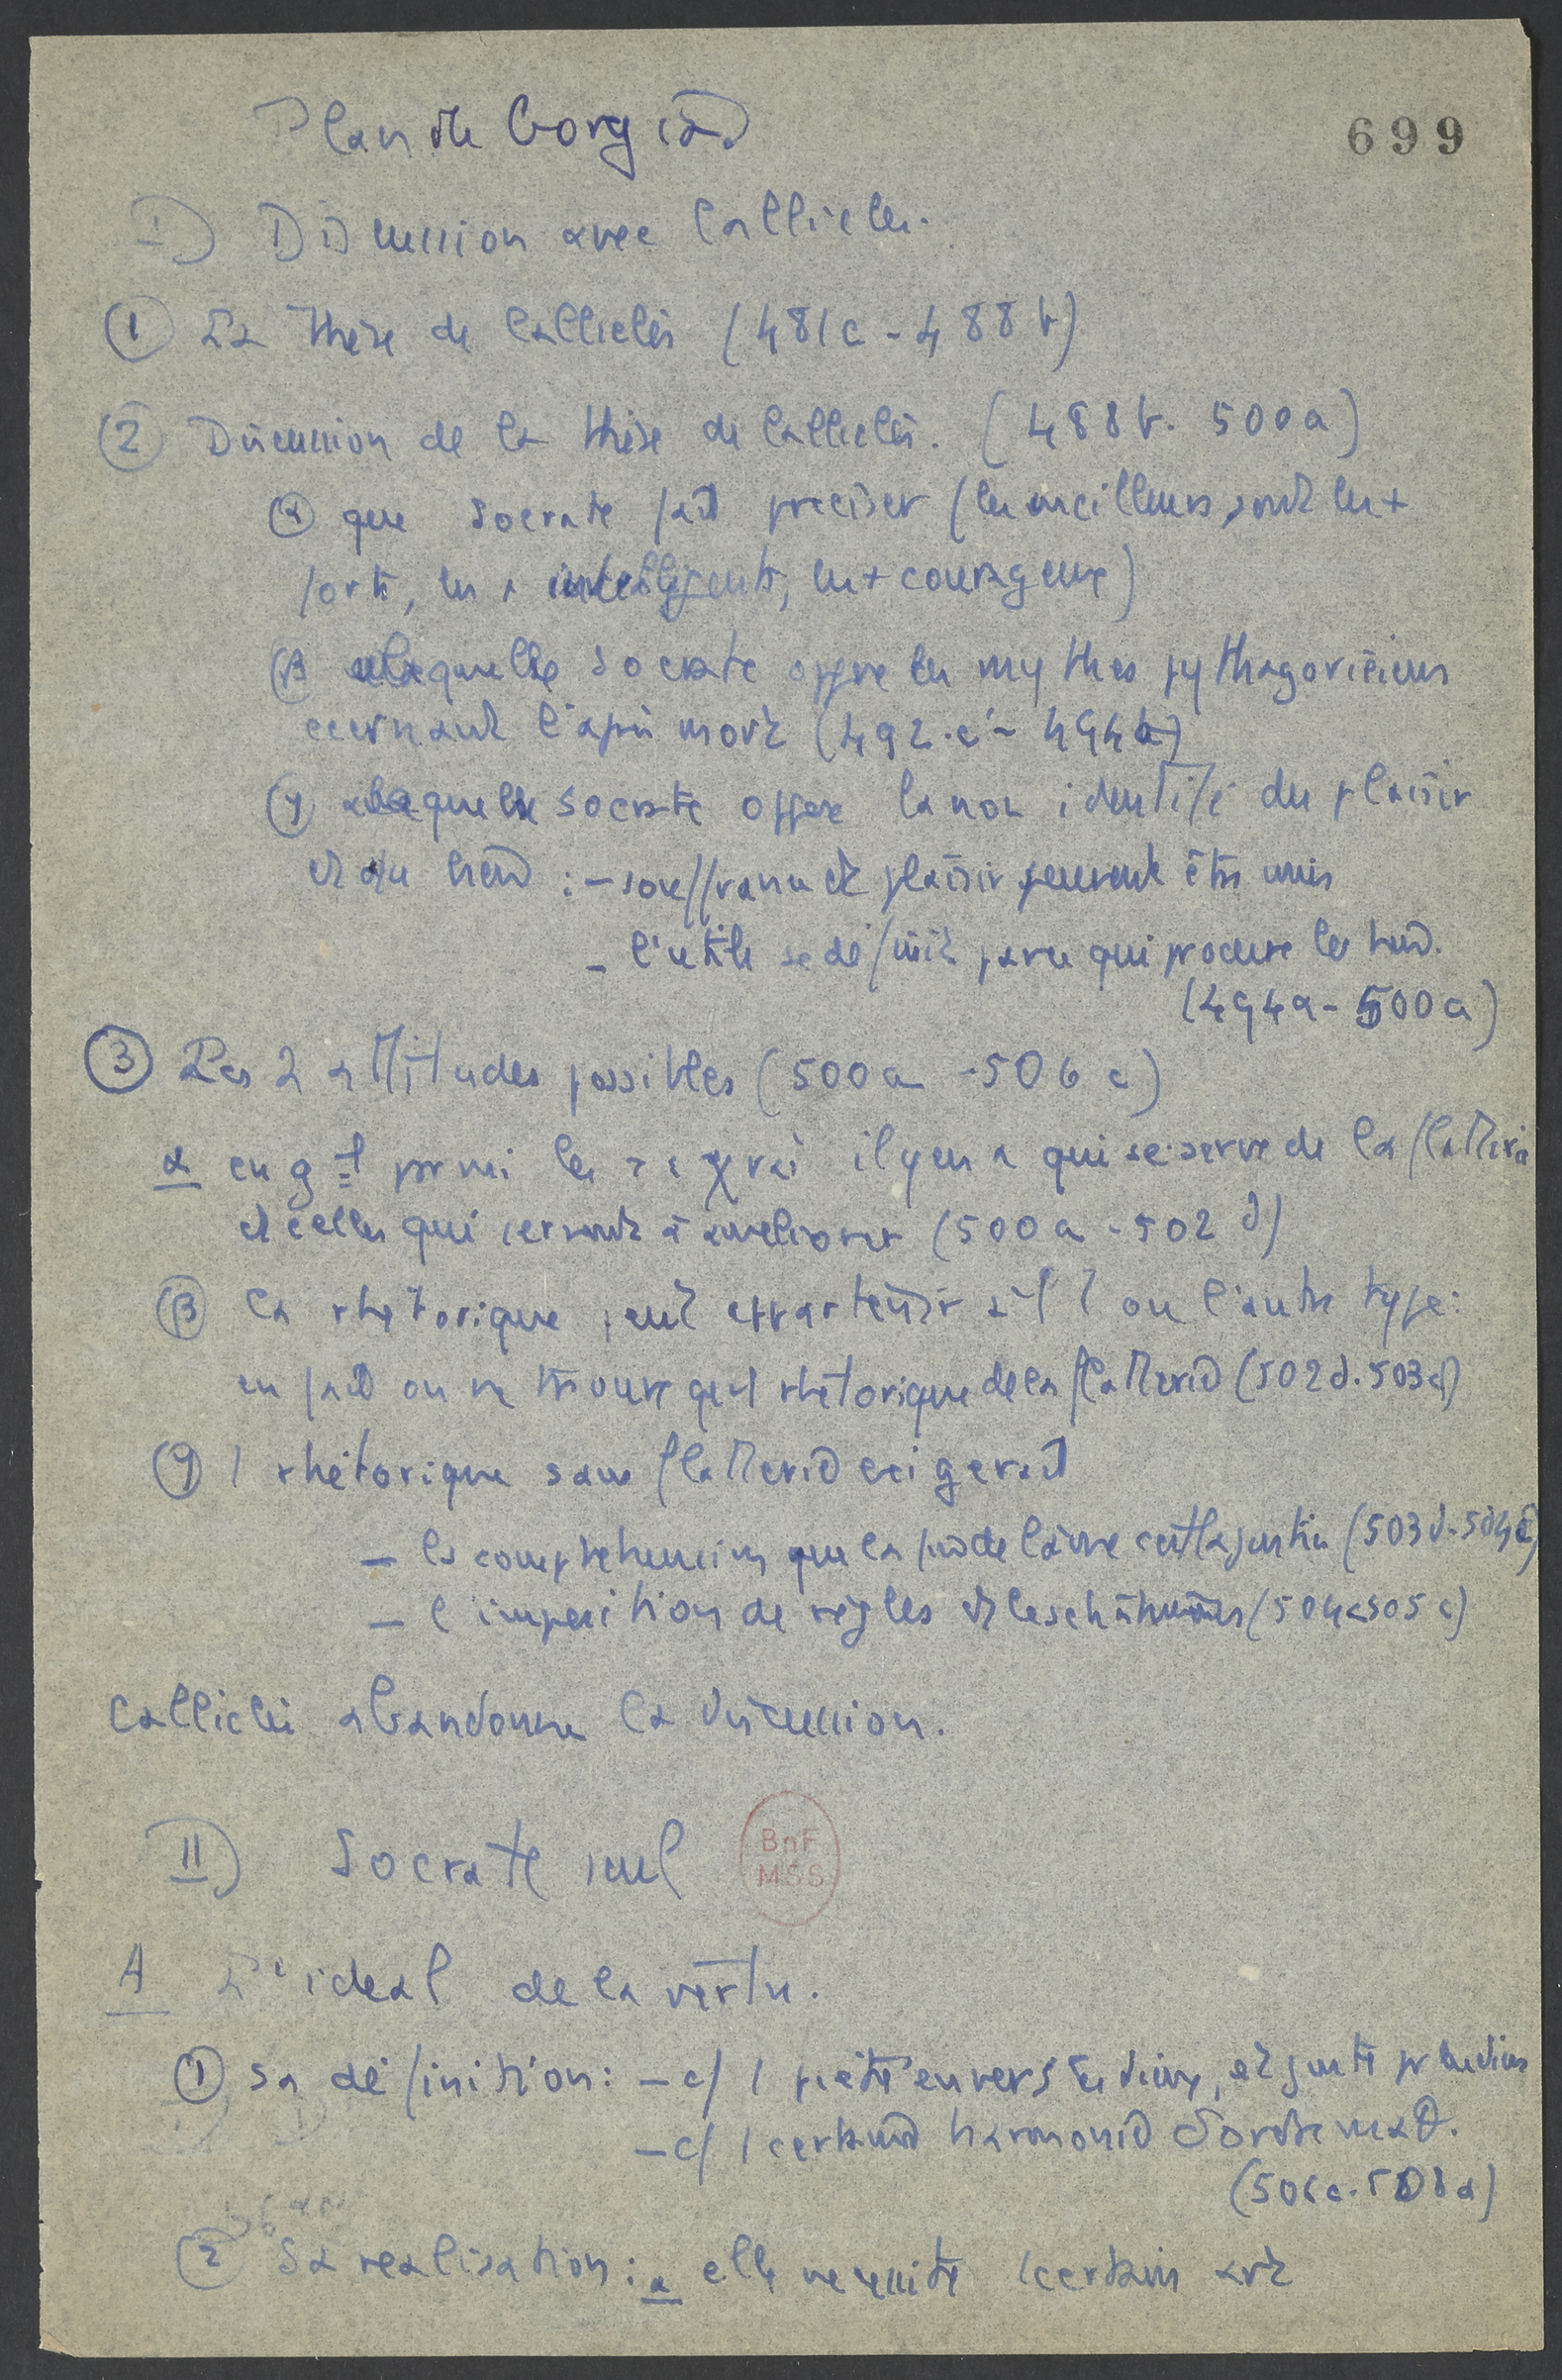 Plan du Gorgias
699
I) Discussion avec Calliclès.
① La thèse de Calliclès (481c - 488b)
② Discussion de la thèse de Calliclès. (488b - 500a)
α que Socrate fait préciser (les meilleurs sont les +
forts, les + intelligents, les + courageux)
β à laquelle Socrate oppose les mythes pythagoriciens
concernant l'après mort (492.e - 494a)
γ à laquelle Socrate oppose la non identité du plaisir
et du bien : - souffrance et plaisir peuvent être unis
- l'utile se définit par ce qui procure le bien.
(494a - 500a)
③ Les 2 attitudes possibles (500a - 506c)
α en gal parmi les τέχναι il y en a qui se serve de la flatterie
et celles qui servent à améliorer (500a - 502d)
β la rhétorique peut appartenir à l'1 ou l'autre type :
en fait on ne trouve qu'1 rhétorique de la flatterie (502d - 503d)
γ 1 rhétorique sans flatterie exigerait
- la compréhension que la fin de l'âme c'est la justice (503d - 504e)
- l'imposition de règles et les châtiments (504e 505c)
Calliclès abandonne la discussion.
II) Socrate seul
BnF
MSS
A L'idéal de la vertu.
① Sa définition : - c/ 1 piété envers les dieux, et juste pr les dieux
- c/ 1 certaine harmonie d'ordre math.
(506c - 508a)
② Sa réalisation : α elle nécessite 1 certain art